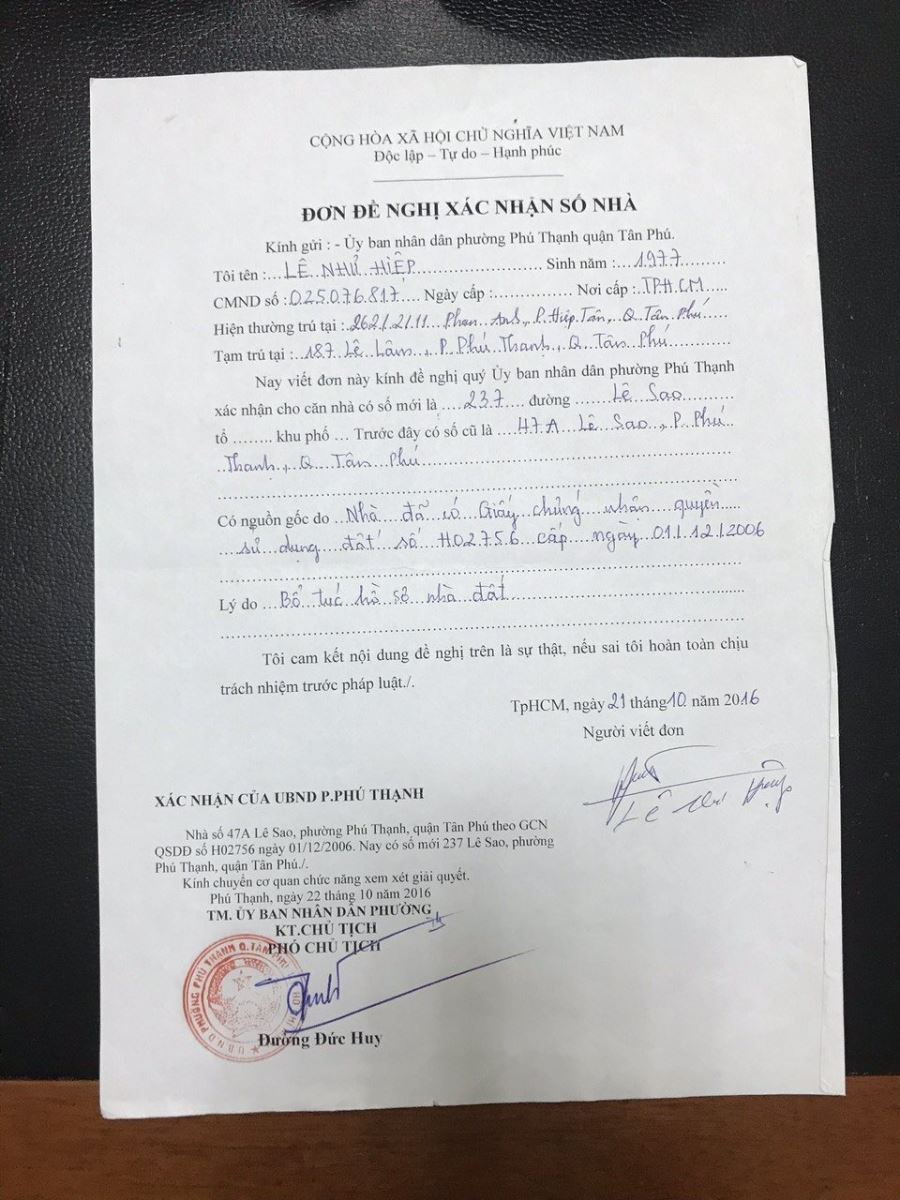 CỘNG HÒA XÃ HỘI CHỦ NGHĨA VIỆT NAM
Độc lập – Tự do – Hạnh phúc
ĐƠN ĐỀ NGHỊ XÁC NHẬN SỐ NHÀ
Kính gửi : - Ủy ban nhân dân phường Phú Thạnh quận Tân Phú.
Tôi tên :... LÊ NHƯ HIỆP ........................ Sinh năm :...1977........
CMND số :025076817.... Ngày cấp :.............. Nơi cấp :TP.H.CM.....
Hiện thường trú tại :.262/2/11 Phan Anh, P. Hiệp Tân, Q Tân Phú
Tạm trú tại :.187 Lê Lâm, P. Phú Thạnh, Q Tân Phú
Nay viết đơn này kính đề nghị quý Ủy ban nhân dân phường Phú Thạnh
xác nhận cho căn nhà có số mới là ....237.... đường ......Lê Sao..........
tổ ........ khu phố ... Trước đây có số cũ là ...47A Lê Sao, P. Phú
Thạnh, Q Tân Phú
Có nguồn gốc do ..Nhà đã có Giấy chứng nhận quyền
sử dụng đất số H02756 cấp ngày 01/12/2006
Lý do ...Bổ túc hồ sơ nhà đất
Tôi cam kết nội dung đề nghị trên là sự thật, nếu sai tôi hoàn toàn chịu
trách nhiệm trước pháp luật./.
TpHCM, ngày 21 tháng 10 năm 2016
Người viết đơn
Lê Như Hiệp
XÁC NHẬN CỦA UBND P.PHÚ THẠNH
Nhà số 47A Lê Sao, phường Phú Thạnh, quận Tân Phú theo GCN
QSDĐ số H02756 ngày 01/12/2006. Nay có số mới 237 Lê Sao, phường
Phú Thạnh, quận Tân Phú./.
Kính chuyển cơ quan chức năng xem xét giải quyết.
Phú Thạnh, ngày 22 tháng 10 năm 2016
TM. ỦY BAN NHÂN DÂN PHƯỜNG
KT.CHỦ TỊCH
PHÓ CHỦ TỊCH
U.B.N.D PHƯỜNG PHÚ THẠNH Q.TÂN PHÚ
Dương Đức Huy